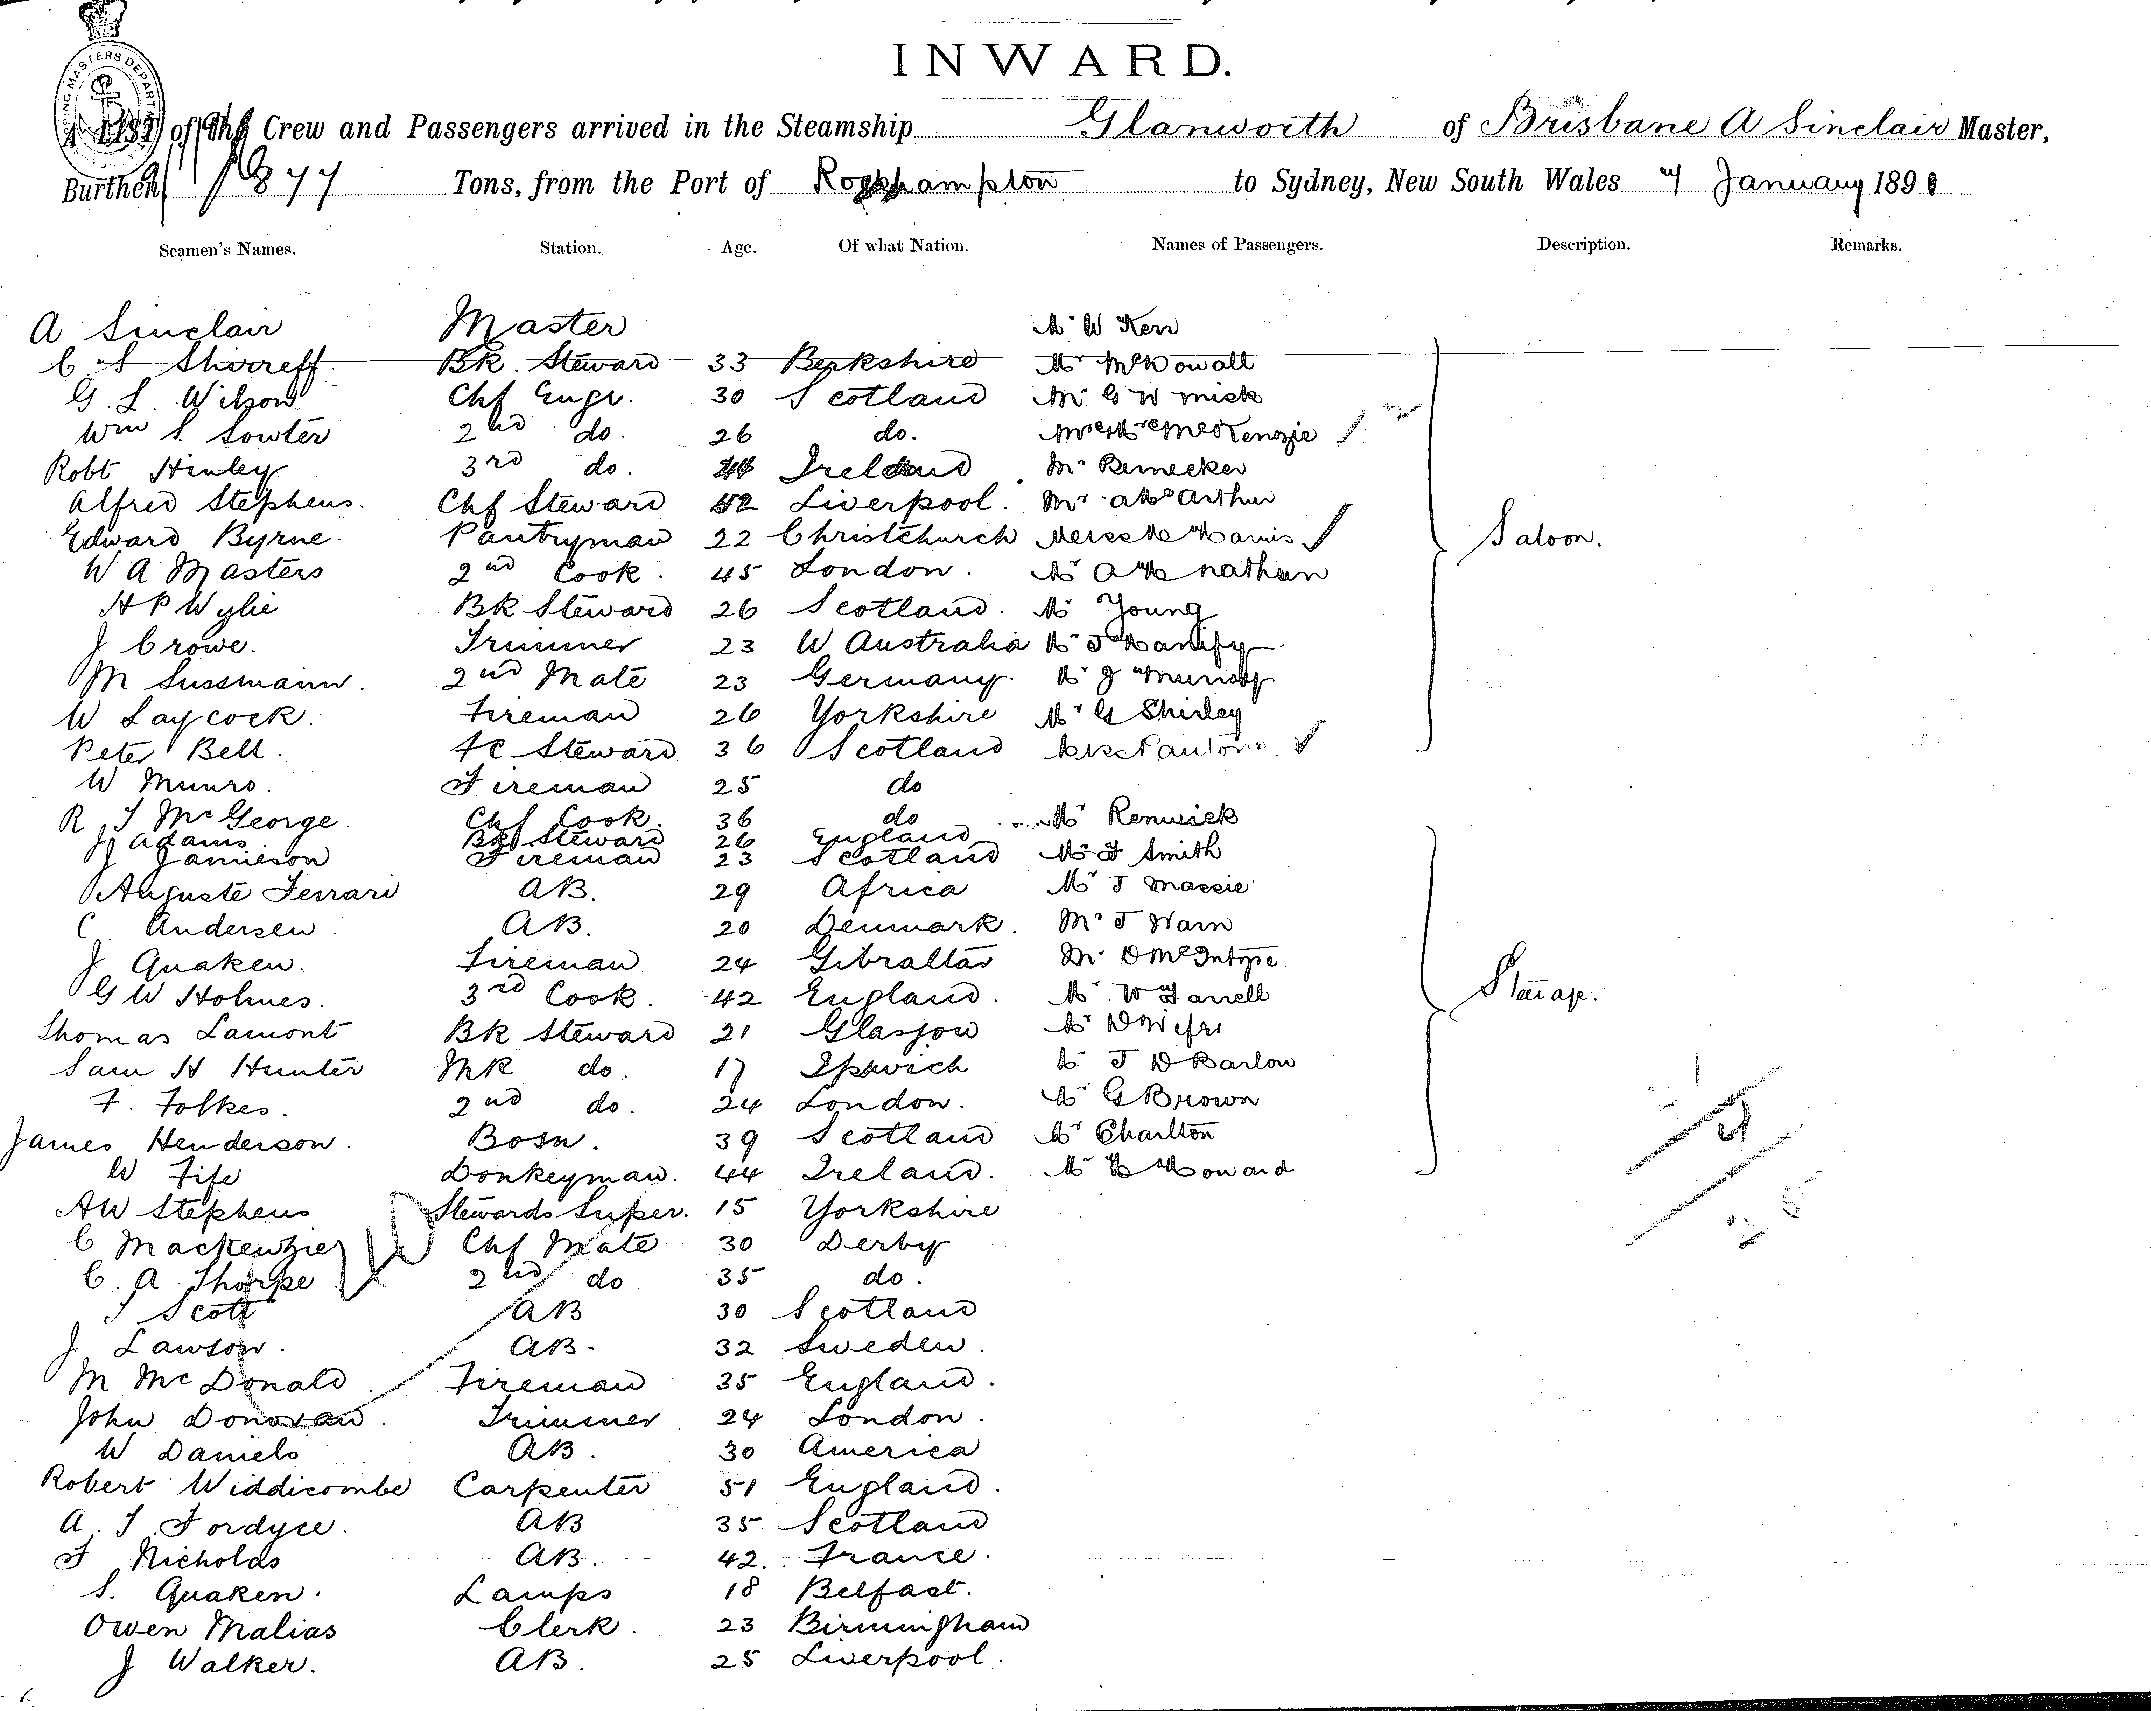 INWARD.
of the Crew and Passengers arrived in the Steamship Glanworth of Brisbane A Sinclair Master,
Burthen 1877 Tons, from the Port of Rockhampton to Sydney, New South Wales January 189
Seamen's Names. Station. Age. Of what Nation. Names of Passengers. Description. Remarks.
A Sinclair Master Mr W Kerr
C S Shirreff Bk. Steward 33 Berkshire Mr McDowall
G. L. Wilson Chf Engr. 30 Scotland Mr G W Mick
Wm S. Sowter 2nd do. 26 do. McKenzie
Robt Hinley 3rd do. Ireland Mr Bernecker
Alfred Stephens. Chf Steward 52 Liverpool. Mr McArthur
Edward Byrne. Pantryman 22 Christchurch Harris Saloon.
W A Masters 2nd Cook. 45 London. Mr Nathan
H P Wylie Bk Steward 26 Scotland. Mr Young
J Crowe. Trimmer 23 W Australia Mr J
M Sussmann. 2nd Mate 23 Germany. Mr J
W Laycock. Fireman 26 Yorkshire Mr G Shirley
Peter Bell. FC Steward 36 Scotland
W Munro. Fireman 25 do
R J McGeorge. Chf Cook. 36 do Mr Renwick
J Adams. Bk Steward 26 England
J Jamieson Fireman 23 Scotland Mr F Smith
Auguste Ferrari AB. 29 Africa Mr J Massie
C Andersen. AB. 20 Denmark. Mr J Warn
J Quaken. Fireman 24 Gibraltar Mr D McIntyre
G W Holmes. 3rd Cook. 42 England. Mr W Farrell Steerage.
Thomas Lamont Bk Steward 21 Glasgow Mr
Sam H Hunter Mk do. 17 Ipswich Mr J D Barlow
F. Folkes. 2nd do. 24 London. Mr G Brown
James Henderson. Bosn. 39 Scotland Mr Charlton
W Fife Donkeyman. 44 Ireland. Mr H Howard
AW Stephens Stewards Super. 15 Yorkshire
C Mackenzie Chf Mate 30 Derby
C. A. Thorpe 2nd do 35 do.
J Scott AB 30 Scotland
J Lawson. AB. 32 Sweden.
M McDonald Fireman 35 England.
John Donovan. Trimmer 24 London.
W Daniels AB. 30 America
Robert Widdicombe Carpenter 51 England.
A. J. Fordyce. AB 35 Scotland
F Nicholas AB. 42. France.
S. Quaken. Lamps 18 Belfast.
Owen Malias Clerk. 23 Birmingham
J Walker. AB. 25 Liverpool.